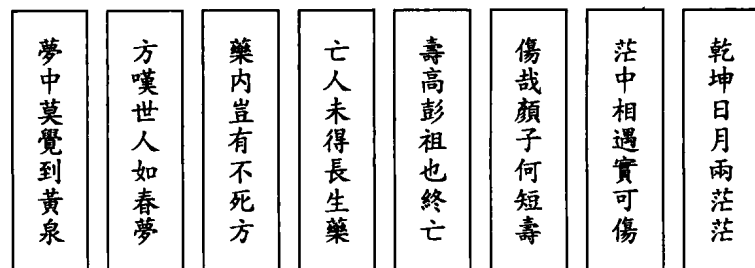 乾坤日月兩茫茫
茫中相遇實可傷
傷哉顏子何短壽
壽高彭祖也終亡
亡人未得長生藥
藥内豈有不死方
方嘆世人如春夢
夢中莫覺到黃泉